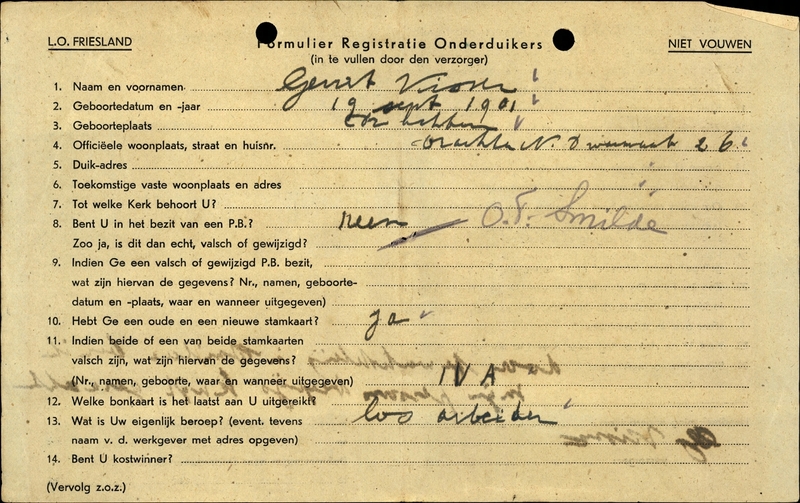 L.O. FRIESLAND
Formulier Registratie Onderduikers
NIET VOUWEN
(in te vullen door den verzorger)
1. Naam en voornamen Gerrit Visser
2. Geboortedatum en -jaar 19 sept 1901
3. Geboorteplaats
4. Officiëele woonplaats, straat en huisnr. Drachten N. 26
5. Duik-adres
6. Toekomstige vaste woonplaats en adres
7. Tot welke Kerk behoort U?
8. Bent U in het bezit van een P.B.? neen O.F. Smilde
Zoo ja, is dit dan echt, valsch of gewijzigd?
9. Indien Ge een valsch of gewijzigd P.B. bezit,
wat zijn hiervan de gegevens? Nr., namen, geboorte-
datum en -plaats, waar en wanneer uitgegeven)
10. Hebt Ge een oude en een nieuwe stamkaart? ja
11. Indien beide of een van beide stamkaarten
valsch zijn, wat zijn hiervan de gegevens?
(Nr., namen, geboorte, waar en wanneer uitgegeven) IVA
12. Welke bonkaart is het laatst aan U uitgereikt?
13. Wat is Uw eigenlijk beroep? (event. tevens los arbeider
naam v. d. werkgever met adres opgeven)
14. Bent U kostwinner?
(Vervolg z.o.z.)